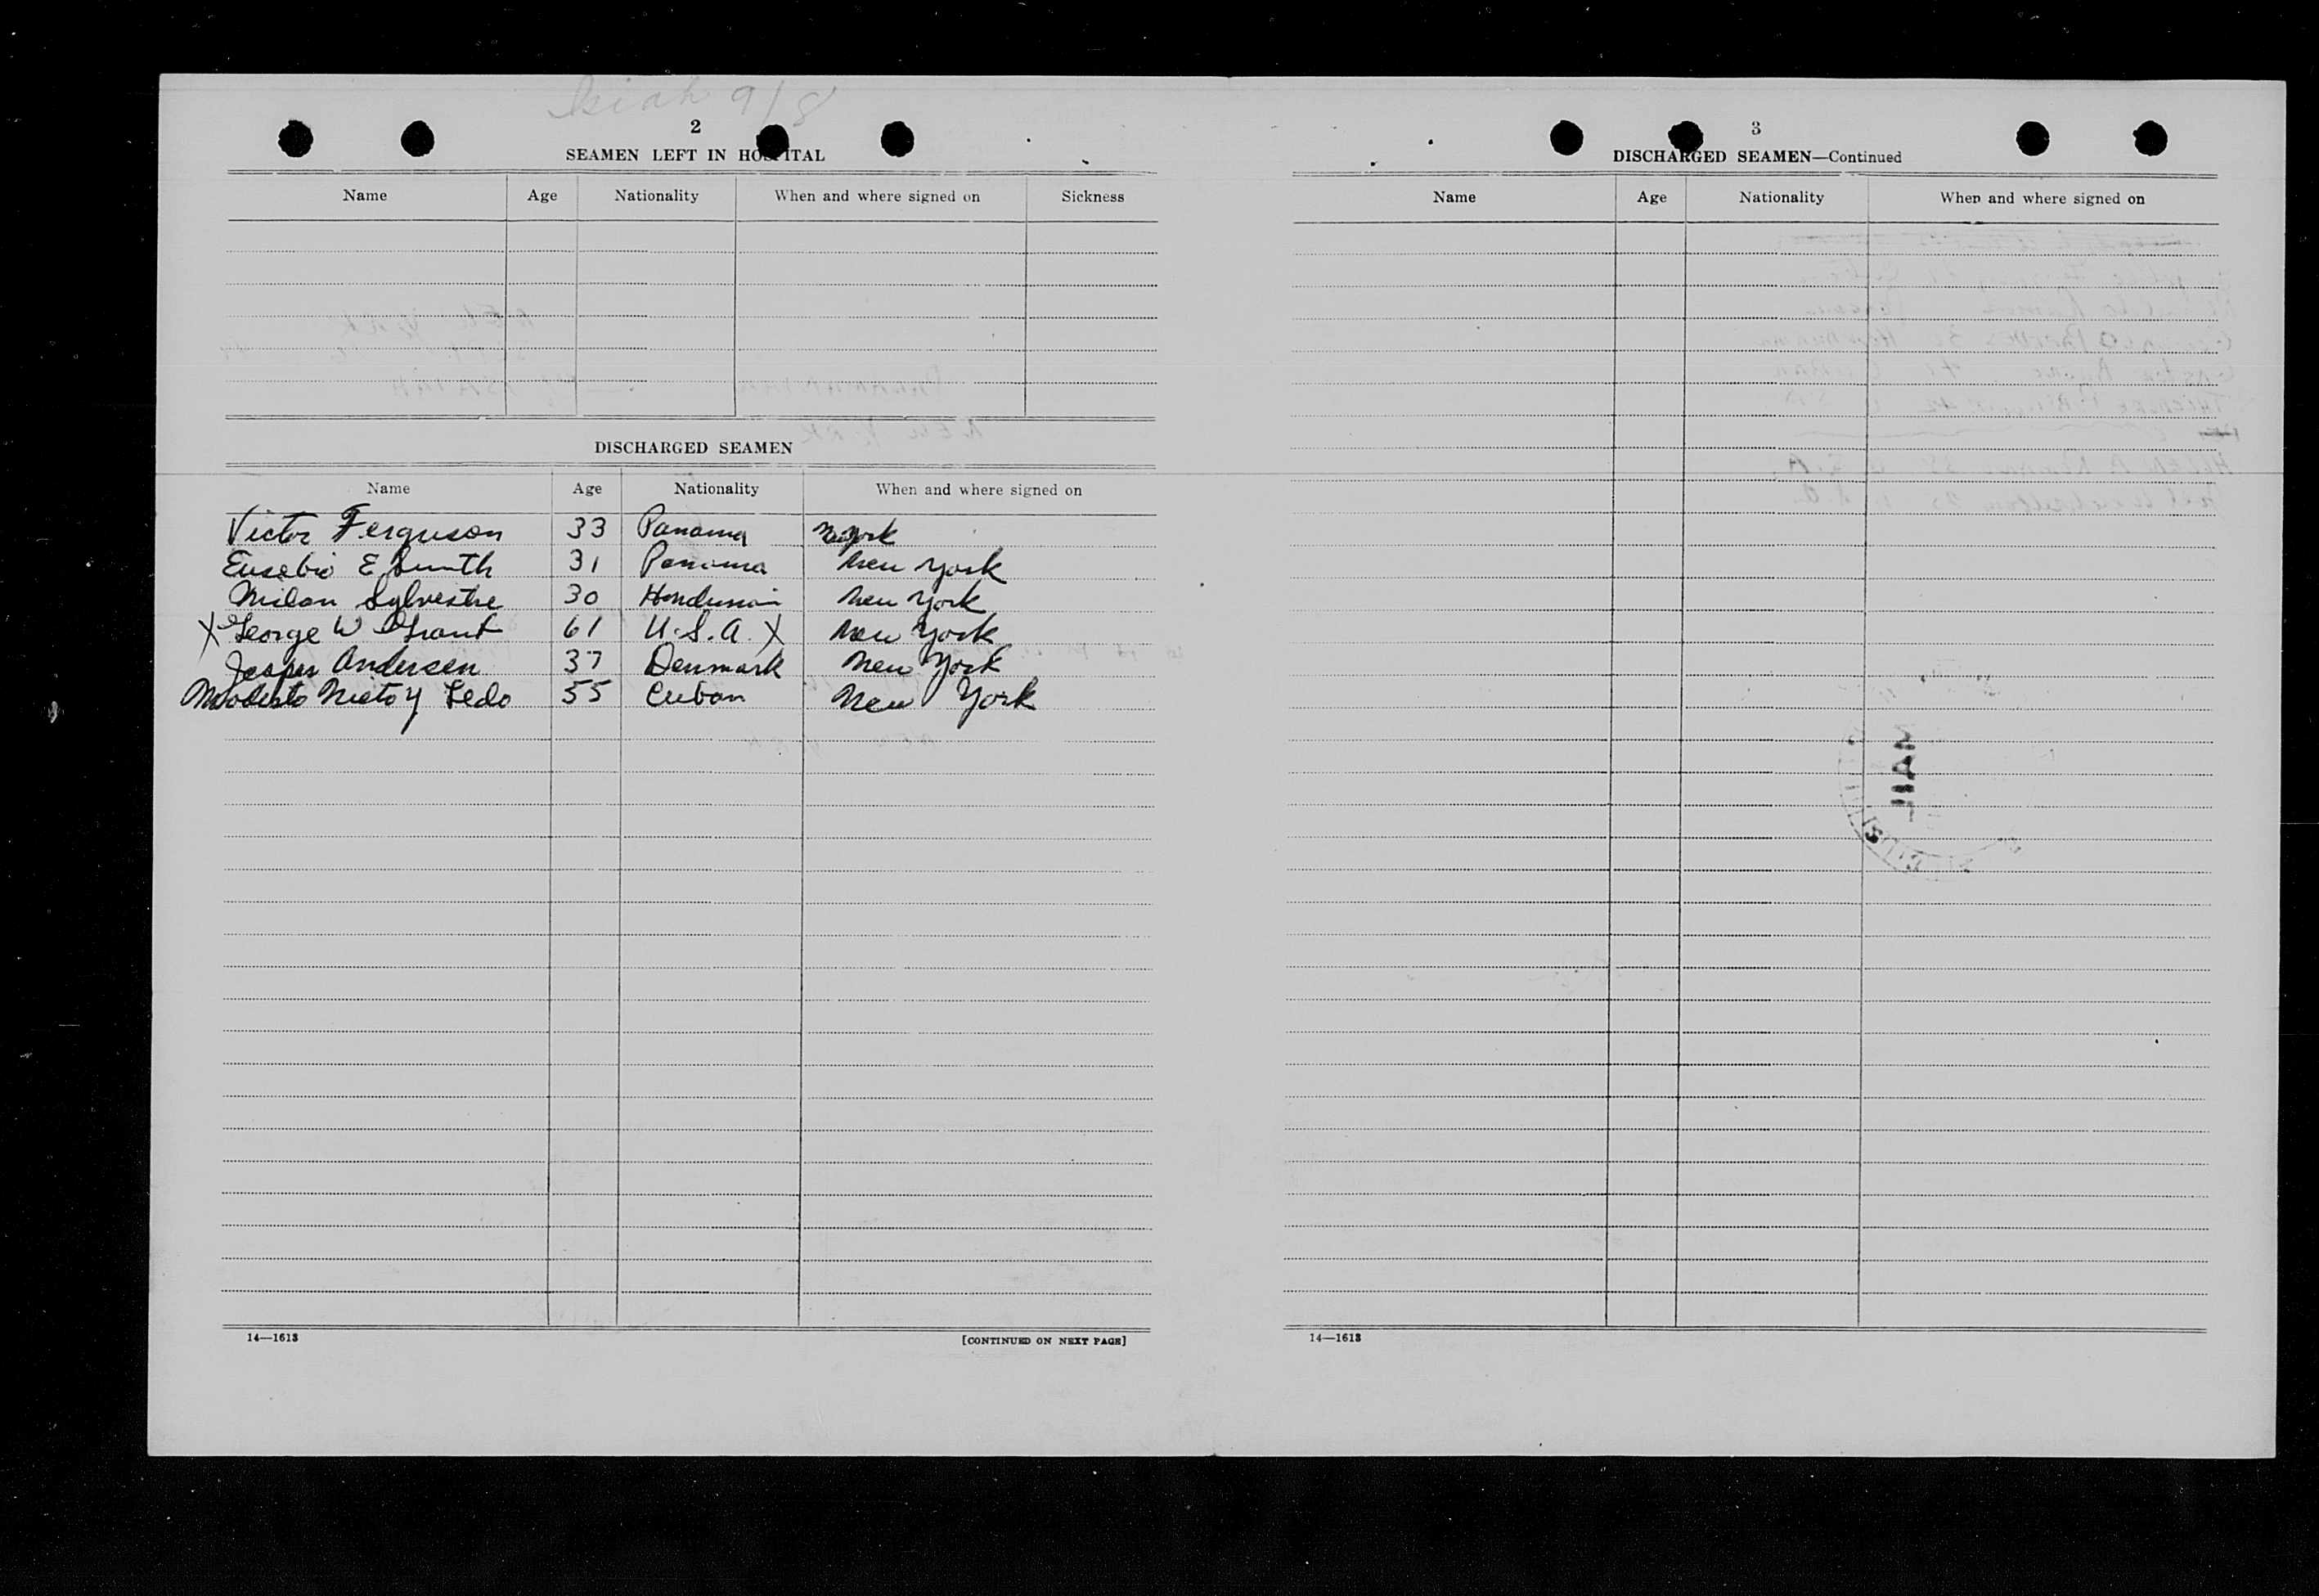 Isiah 9/8
2
SEAMEN LEFT IN HOSPITAL
Name Age Nationality When and where signed on Sickness
DISCHARGED SEAMEN
Name Age Nationality When and where signed on
Victor Ferguson 33 Panama New York
Eusebio E Smith 31 Panama New York
Milan Sylvestre 30 New York
X George W Grant 61 U.S.A. X New York
Jesper Andersen 37 Denmark New York
Modesto Nieto y Ledo 55 Cuban New York
14—1613 [CONTINUED ON NEXT PAGE]
3
DISCHARGED SEAMEN—Continued
Name Age Nationality When and where signed on
MAIL
14—1613